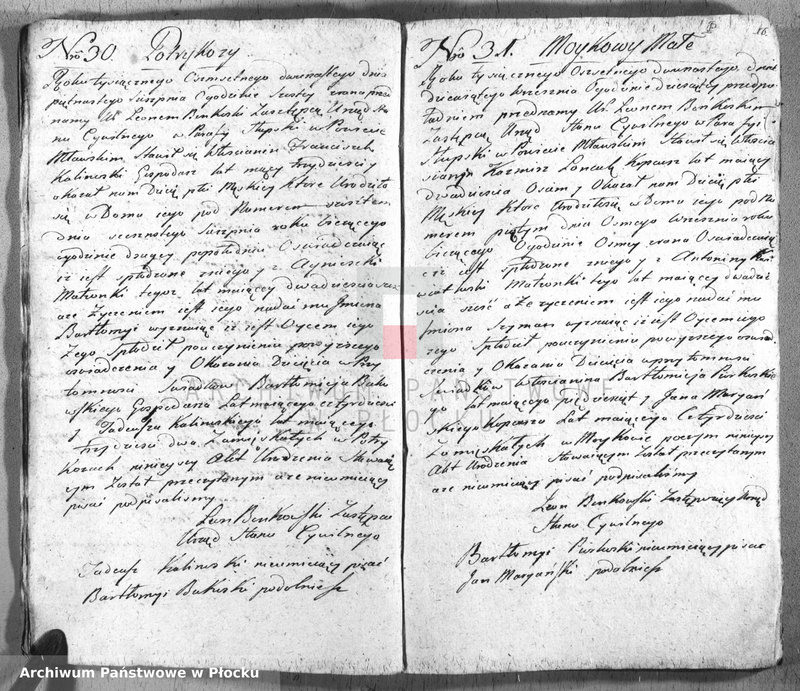 Nro 30. Potryko​zy
Roku tysiącznego Osmsetnego dwunastego dnia
piętnastego Sierpnia o godzinie szostey zrana przed
namy Ur. Leonem Bińkoskim Zastępcą Urząd Sta
nu Cywilnego w Parafij Słupski w Powiecie
Mławskim Stawił się Włoscianin Franciszek
Kalinowski Gospodarz lat maiący Trzydziesci y
okazał nam Dziecię płci Męskiey które Urodziło
się w Domu iego pod Numerem szostem
dnia Sierpnia roku bieżącego
o godzinie drugiey popołudniu Oswiadczaiąc
iż iest spłodzone zniego y z Agnieszki
Małronki tegoż lat maiącey dwadziescia
a że życzeniem iest iego nadać mu Jmiona
Bartłomiy wyznaiąc iż iest Oycem iego
Zego Spłodził pouczynieniu powyższego
oswiadczenia y Okazaniu Dziecięcia w Przy
tomnosci Swiadków Bartłomieja Baku
wskiego Gospodarza Lat maiącego czterdziesci
y Tadeusza Kalinowskiego lat maiącego
Trzydziesci dwa Zamięszkałych w Potry
kozach ninieyszy Akt Urodzenia Stawaią
cym Został przeczytanym a że nieumieiący
pisać podpisalismy
Leon Benkowski Zastępca
Urząd Stanu Cywilnego
Tadeusz Kalinowski nieumieiący pisać
Bartłomiy Bakuski podobniesz
Nro 31. Moykowy Małe
16
Roku tysiącznego Osmsetnego dwunastego, dnia
dziesiątego Wrzesnia O godzinie dziesiątey przedpo
łudniem przednamy Ur. Leonem Bińkoskim
Zastępcą Urząd Stanu Cywilnego w Parafyi
Słupski w Powiecie Mławskim Stawił się Włoscia
nin Kazmierz Kopacz lat maiący
dwadziescia Osiem y Okazał nam Dziecię płci
Męskiey które Urodziło się w Domu iego pod Nu
merem piątym dnia Osmego Wrzesnia roku
bieżącego O godzinie Osmey zrana Oswiadczaiąc
iż iest Spłodzone zniego y z Antoniny
Małronki tego lat maiącey dwadzie
scia szesć a że życzeniem iest iego nadać mu
Jmiona Szyman wyznaiąc iż iest Oycem iego
Zego Spłodził pouczynieniu powyższego oswiad
czenia y Okazaniu Dziecięcia w przytomnosci
Swiadków Włoscianina Bartłomieja Purkoskie
go lat maiącego pięcdziesiąt y Jana Margań
skiego Kopacza Lat maiącego Czterdziesci
Zamięszkałych w Moykowie poczym ninieyszy
Akt Urodzenia Stawaiącym Został przeczytanym
a że nieumieiący pisać podpisalismy
Leon Benkowski Zastępuiący Urząd
Stanu Cywilnego
Bartłomiy Purkoski nieumieiący pisać
Jan Margański podobniesz
ARCHIWUM PAŃSTWOWE
W PŁOCKU
Archiwum Państwowe w Płocku